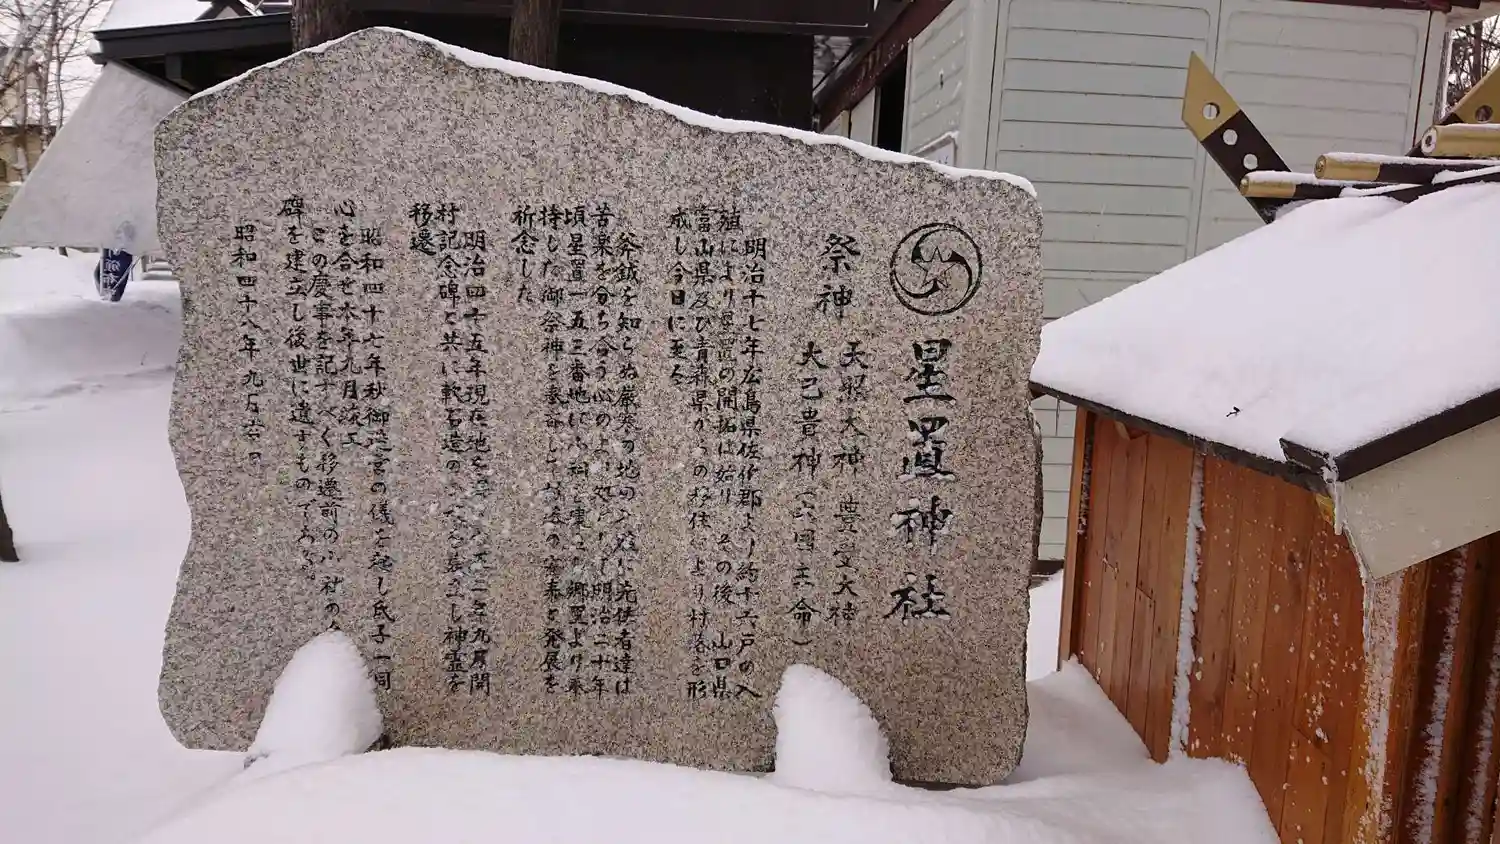 星置神社
祭神 天照大神 豊受大神
大己貴神(大國主命)
明治十七年広島県佐伯郡より約十六戸の入
殖により星置の開拓は始り、その後、山口県
富山県及び青森県からの移住により村落を形
成し今日に至る
斧鉞を知らぬ厳寒の地の入植に先住者達は
苦楽を分ち合う心のよい処として明治二十年
頃星置一五三番地に小祠を建て、郷里より奉
持した御祭神を奉斎し村落の
発展を
祈念した
明治四十五年現在地を
九月開
村記念碑と共に軟石造の
し神霊を
移遷
昭和四十七年秋御造宮の儀を起し氏子一同
心を合せ本年九月竣工
この慶事を記すべく移遷前の小社の
碑を建立し後世に遺すものである。
昭和四十八年 九月六日